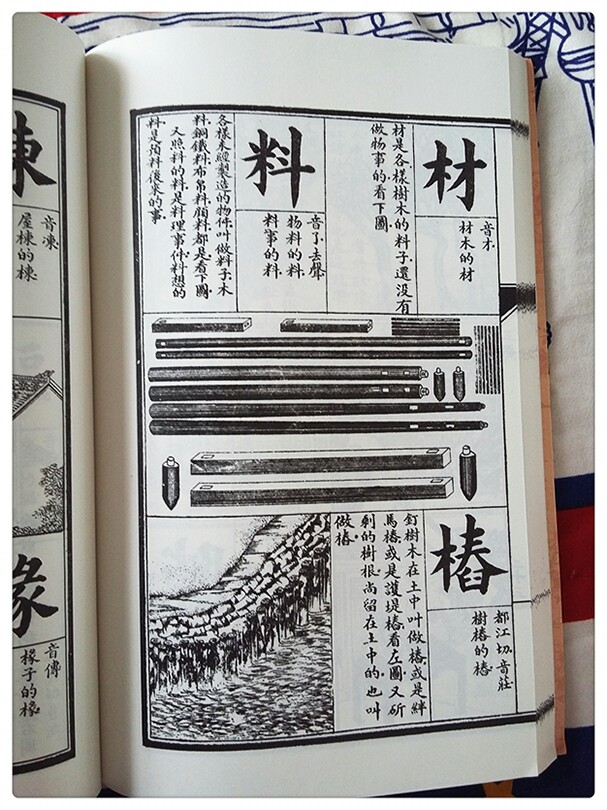 材
音才
材木的材
材是各樣樹木的料子還沒有
做物事的看下圖
料
音了去聲
物料的料
料事的料
各樣未經製造的物件叫做料子木
料銅鐵料布帛料顏料都是看下圖
又照料的料是料理事件料想的
料是預料後來的事
樁
都江切音莊
樹樁的樁
釘樹木在土中叫做樁或是絆
馬樁或是護堤樁看左圖又斫
剩的樹根尚留在土中的也叫
做樁
棟
音凍
屋棟的棟
椽
音傳
椽子的椽